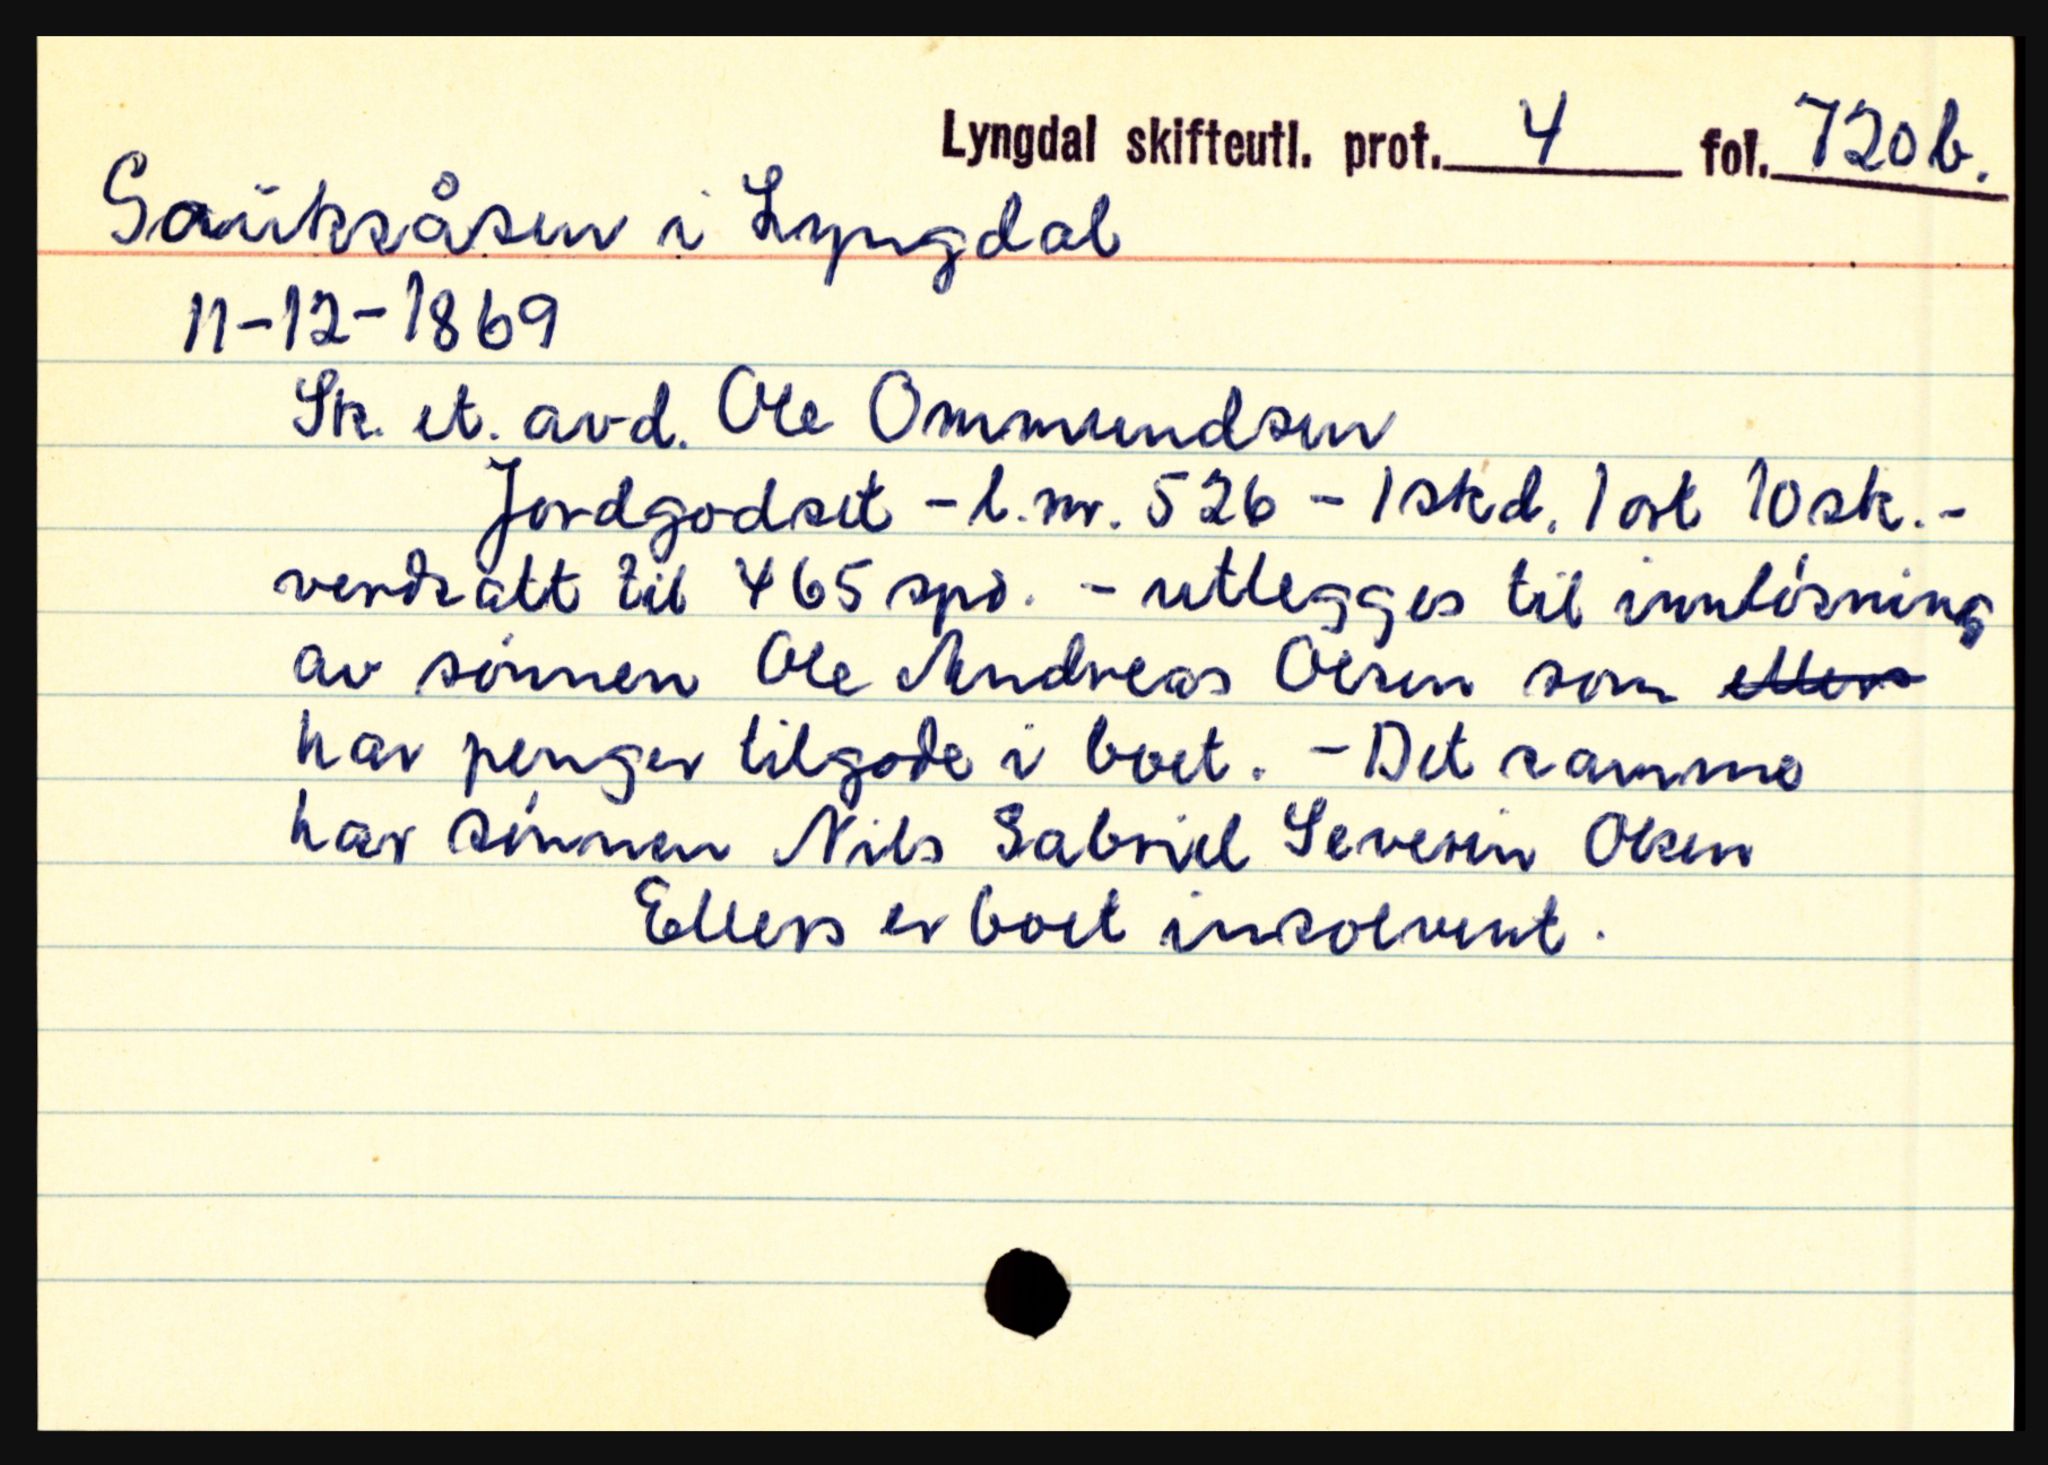 Lyngdal skifteutl. prot. 4 fol. 720b.
Gaüksåsen i Lyngdal
11-12-1869
Sk. et. avd. Ole Ommundsen
Jordgodset - l.nr. 526 - 1 skd. 1 ort 10 sk. -
verdsatt til 465 spd. - utlegges til innløsning
av sønnen Ole Andreas Olsen som ellers
har penger tilgode i boet. - Det samme
har sønnen Nils Gabriel Severin Olsen
Ellers er boet insolvent.